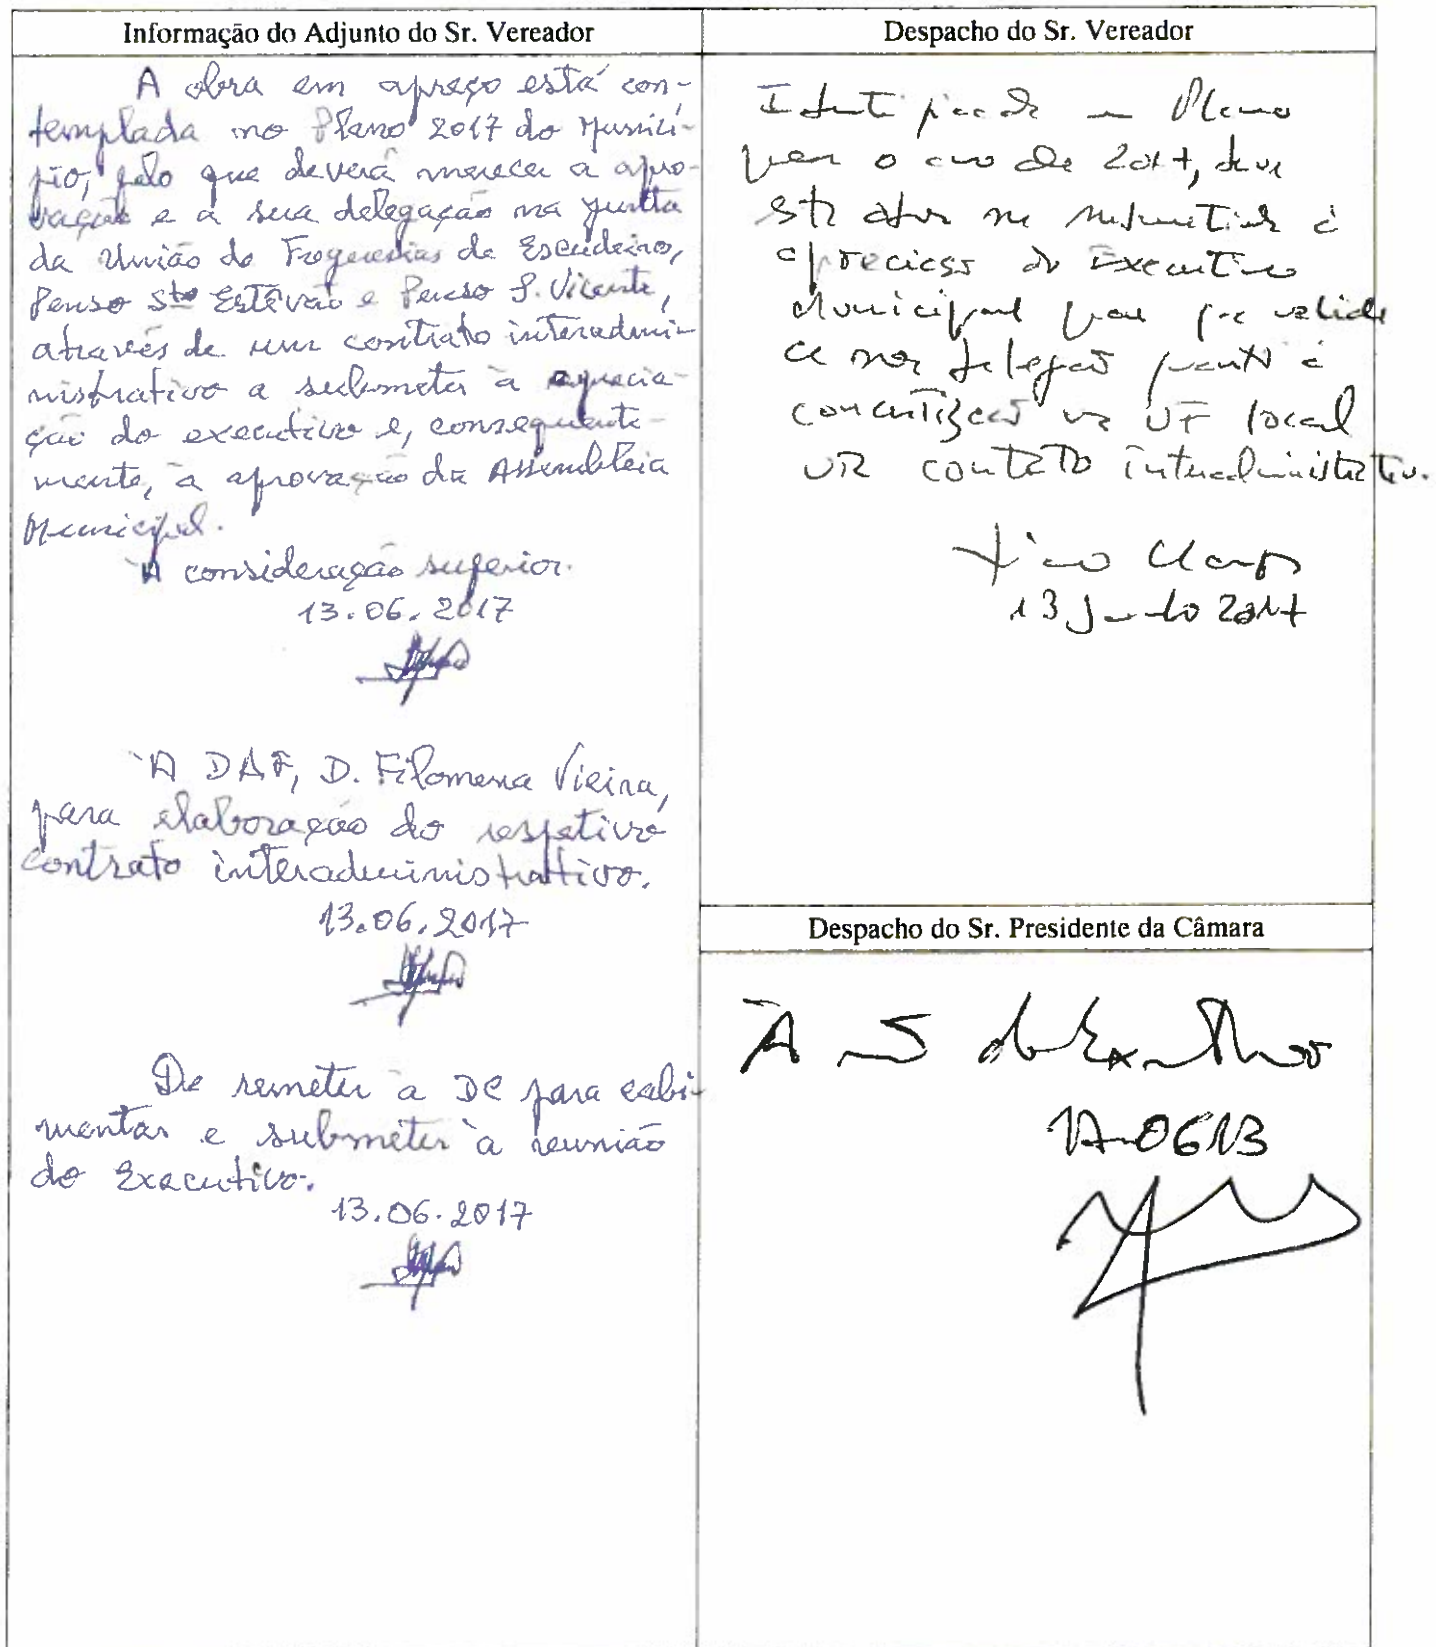 Informação do Adjunto do Sr. Vereador
A obra em apreço está con-
templada no Plano 2017 do Municí-
pio, pelo que deverá merecer a apro-
vação e a sua delegação na Junta
da União de Freguesias de Escudeiros,
Penso Sto Estêvão e Penso S. Vicente,
através de um contrato interadmi-
nistrativo a submeter à aprecia-
ção do executivo e, consequente-
mente, à aprovação da Assembleia
Municipal.
À consideração superior.
13.06.2017
À DAF, D. Filomena Vieira,
para elaboração do respetivo
contrato interadministrativo.
13.06.2017
De remeter à DC para cabi-
mentar e submeter à reunião
do Executivo.
13.06.2017
Despacho do Sr. Vereador
Identificada no Plano
para o ano de 2017, deve
esta obra ser submetida à
apreciação do Executivo
Municipal para que valide
a delegação quanto à
concretização na UF local
via contrato interadministrativo.
13 Junho 2017
Despacho do Sr. Presidente da Câmara
À do Executivo
17-0613